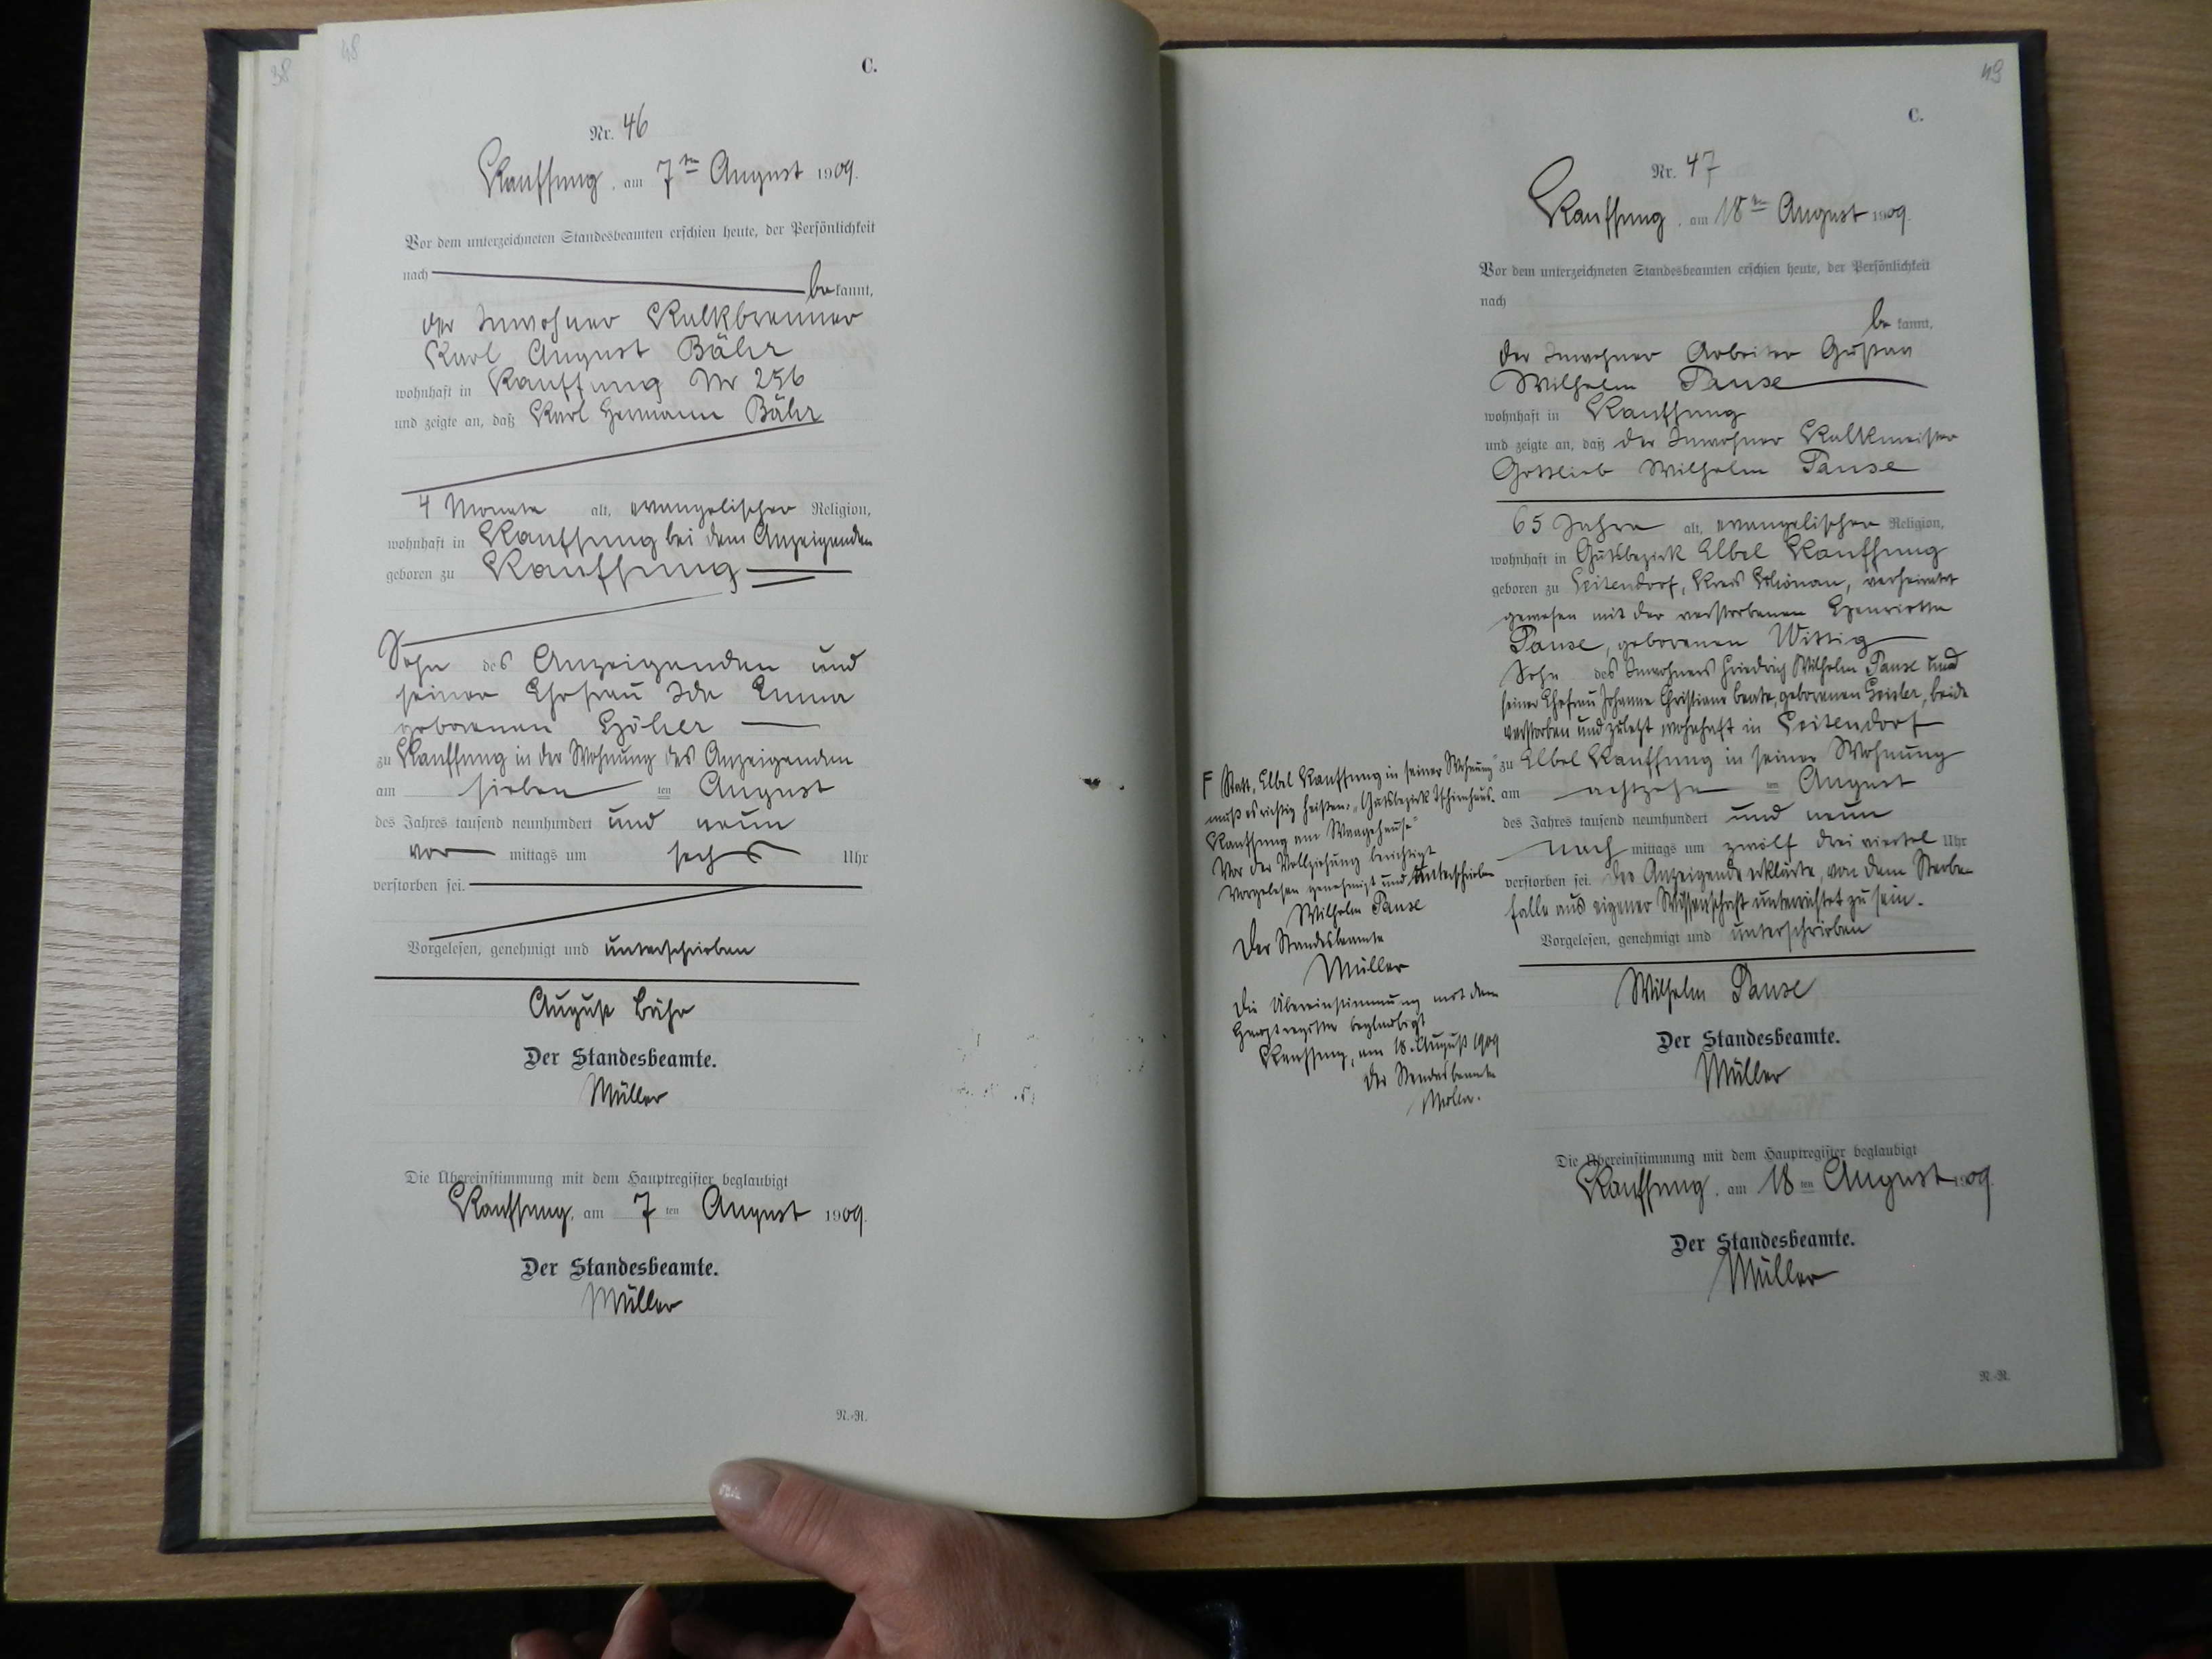 38
48
C.
Nr. 46
Kauffung, am 7ten August 1909.
Vor dem unterzeichneten Standesbeamten erschien heute, der Persönlichkeit
nach bekannt,
der Inwohner Kalkbrenner
Karl August Bähr
wohnhaft in Kauffung Nr 256
und zeigte an, daß Karl Hermann Bähr
4 Monate alt, evangelischer Religion,
wohnhaft in Kauffung bei dem Anzeigenden
geboren zu Kauffung
Sohn des Anzeigenden und
seiner Ehefrau Ida Emma
geborenen
zu Kauffung in der Wohnung des Anzeigenden
am sieben ten August
des Jahres tausend neunhundert und neun
vor mittags um sechs Uhr
verstorben sei.
Vorgelesen, genehmigt und unterschrieben
August Bähr
Der Standesbeamte.
Müller
Die Übereinstimmung mit dem Hauptregister beglaubigt
Kauffung, am 7 ten August 1909.
Der Standesbeamte.
Müller
N.-R.
49
C.
Nr. 47
Kauffung, am 18ten August 1909.
Vor dem unterzeichneten Standesbeamten erschien heute, der Persönlichkeit
nach
bekannt,
der Inwohner Arbeiter Gustav
Wilhelm Pause
wohnhaft in Kauffung
und zeigte an, daß der Inwohner Kalkmeister
Gottlieb Wilhelm Pause
65 Jahre alt, evangelischer Religion,
wohnhaft in Gutsbezirk Elbel Kauffung
geboren zu Seitendorf, Kreis Schönau, verheiratet
gewesen mit der verstorbenen Henriette
Pause, geborenen Wittig
Sohn des Inwohners Friedrich Wilhelm Pause und
seiner Ehefrau Johanne Christiane Beate, geborenen Geisler, beide
verstorben und zuletzt wohnhaft in Seitendorf
zu Elbel Kauffung in seiner Wohnung
am achtzehn ten August
des Jahres tausend neunhundert und neun
nach mittags um zwölf drei viertel Uhr
verstorben sei. Der Anzeigende erklärte, von dem Sterbe-
falle aus eigener Wissenschaft unterrichtet zu sein.
Vorgelesen, genehmigt und unterschrieben
Wilhelm Pause
Der Standesbeamte.
Müller
Die Übereinstimmung mit dem Hauptregister beglaubigt
Kauffung, am 18 ten August 1909.
Der Standesbeamte.
Müller
N.-R.
F Statt „Elbel Kauffung in seiner Wohnung"
muß es richtig heißen: „Gutsbezirk Tschirnhaus-
Kauffung am Waagehause"
Vor der Vollziehung berichtigt
Vorgelesen genehmigt und unterschrieben
Wilhelm Pause
Der Standesbeamte
Müller
Die Übereinstimmung mit dem
Hauptregister beglaubigt
Kauffung, am 18. August 1909
Der Standesbeamte
Müller.